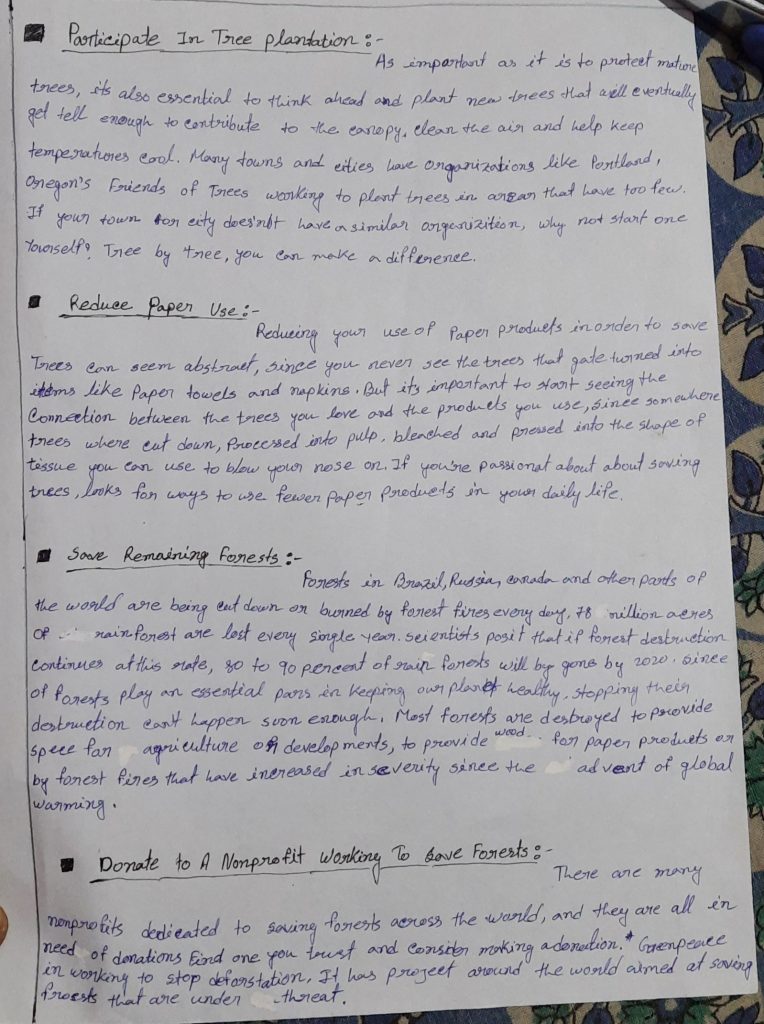 Participate In Tree plantation :-
As important as it is to protect mature
trees, its also essential to think ahead and plant new trees that will eventually
get tell enough to contribute to the canopy, clean the air and help keep
temperatures cool. Many towns and cities have organizations like Portland,
Oregon's Friends of Trees working to plant trees in arear that have too few.
If your town or city does'nt have a similar organizition, why not start one
Yourself? Tree by tree, you can make a difference.
Reduce Paper Use :-
Reducing your use of Paper products in order to save
Trees can seem abstract, since you never see the trees that gate turned into
items like Paper towels and napkins. But its important to start seeing the
Connection between the trees you love and the products you use, since somewhere
trees where cut down, Processed into pulp, bleached and pressed into the shape of
tissue you can use to blow your nose on. If you're passionat about about saving
trees, looks for ways to use fewer paper products in your daily life.
Save Remaining Forests :-
Forests in Brazil, Russia, canada and other parts of
the world are being cut down or burned by forest fires every day. 78 million acres
of rainforest are lost every single year. scientists posit that if forest destruction
continues at this rate, 80 to 90 percent of rain forests will by gone by 2020. since
of forests play an essential pars in keeping our planet healthy, stopping their
destruction can't happen soon enough. Most forests are destroyed to provide
spece for agriculture or developments, to provide wood for paper products or
by forest fires that have increased in severity since the advent of global
warming.
Donate to A Nonprofit Working To Save Forests :-
There are many
nonprofits dedicated to saving forests across the world, and they are all in
need of donations Find one you trust and consider making a donation. * Greenpeace
in working to stop deforstation. It has project around the world aimed at saving
froests that are under threat.